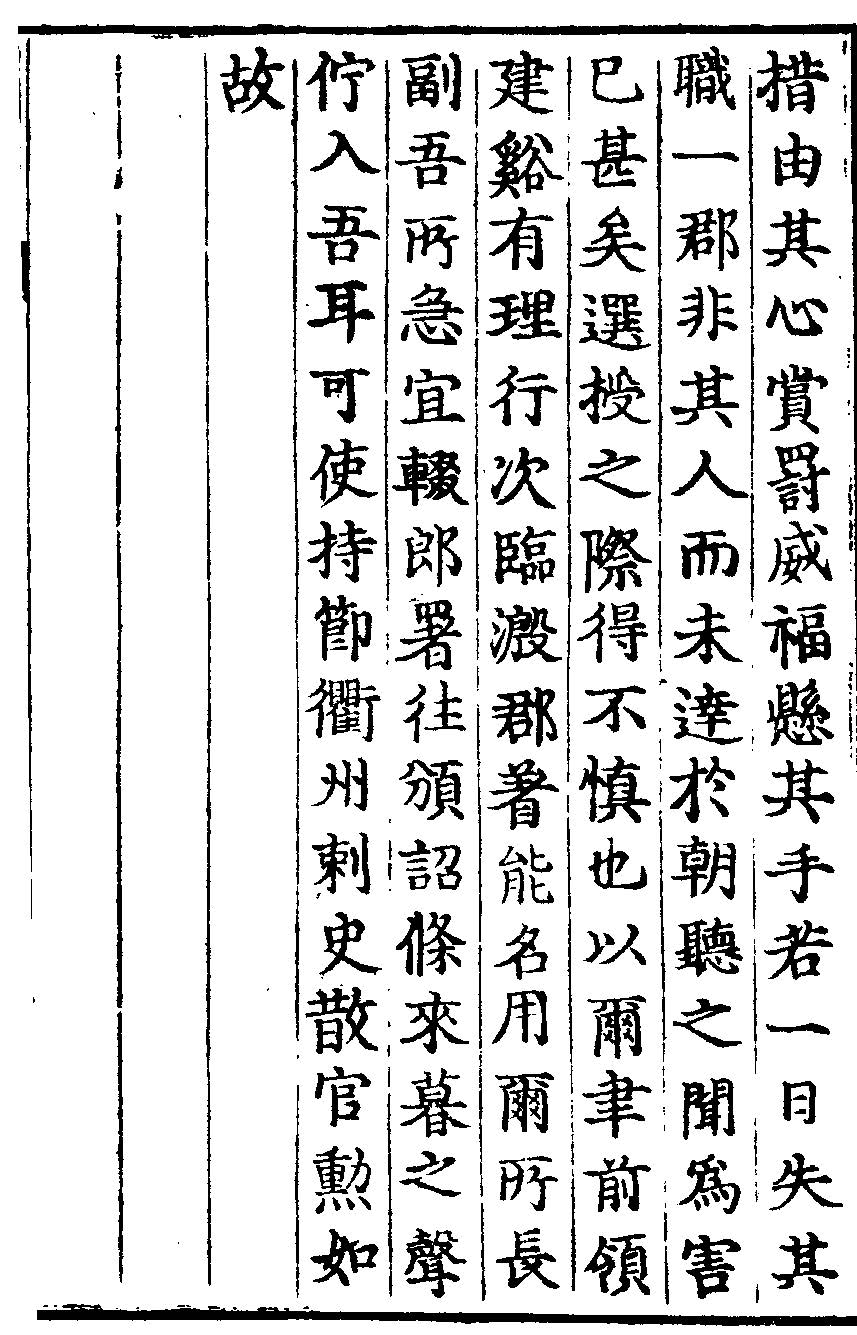 措由其心賞罰威福懸其手若一日失其
職一郡非其人而未達於朝聽之聞爲害
已甚矣選授之際得不慎也以爾聿前領
建谿有理行次臨溵郡著能名用爾所長
副吾所急宜輟郎署往頒詔條來暮之聲
佇入吾耳可使持節衢州刺史散官勳如
故